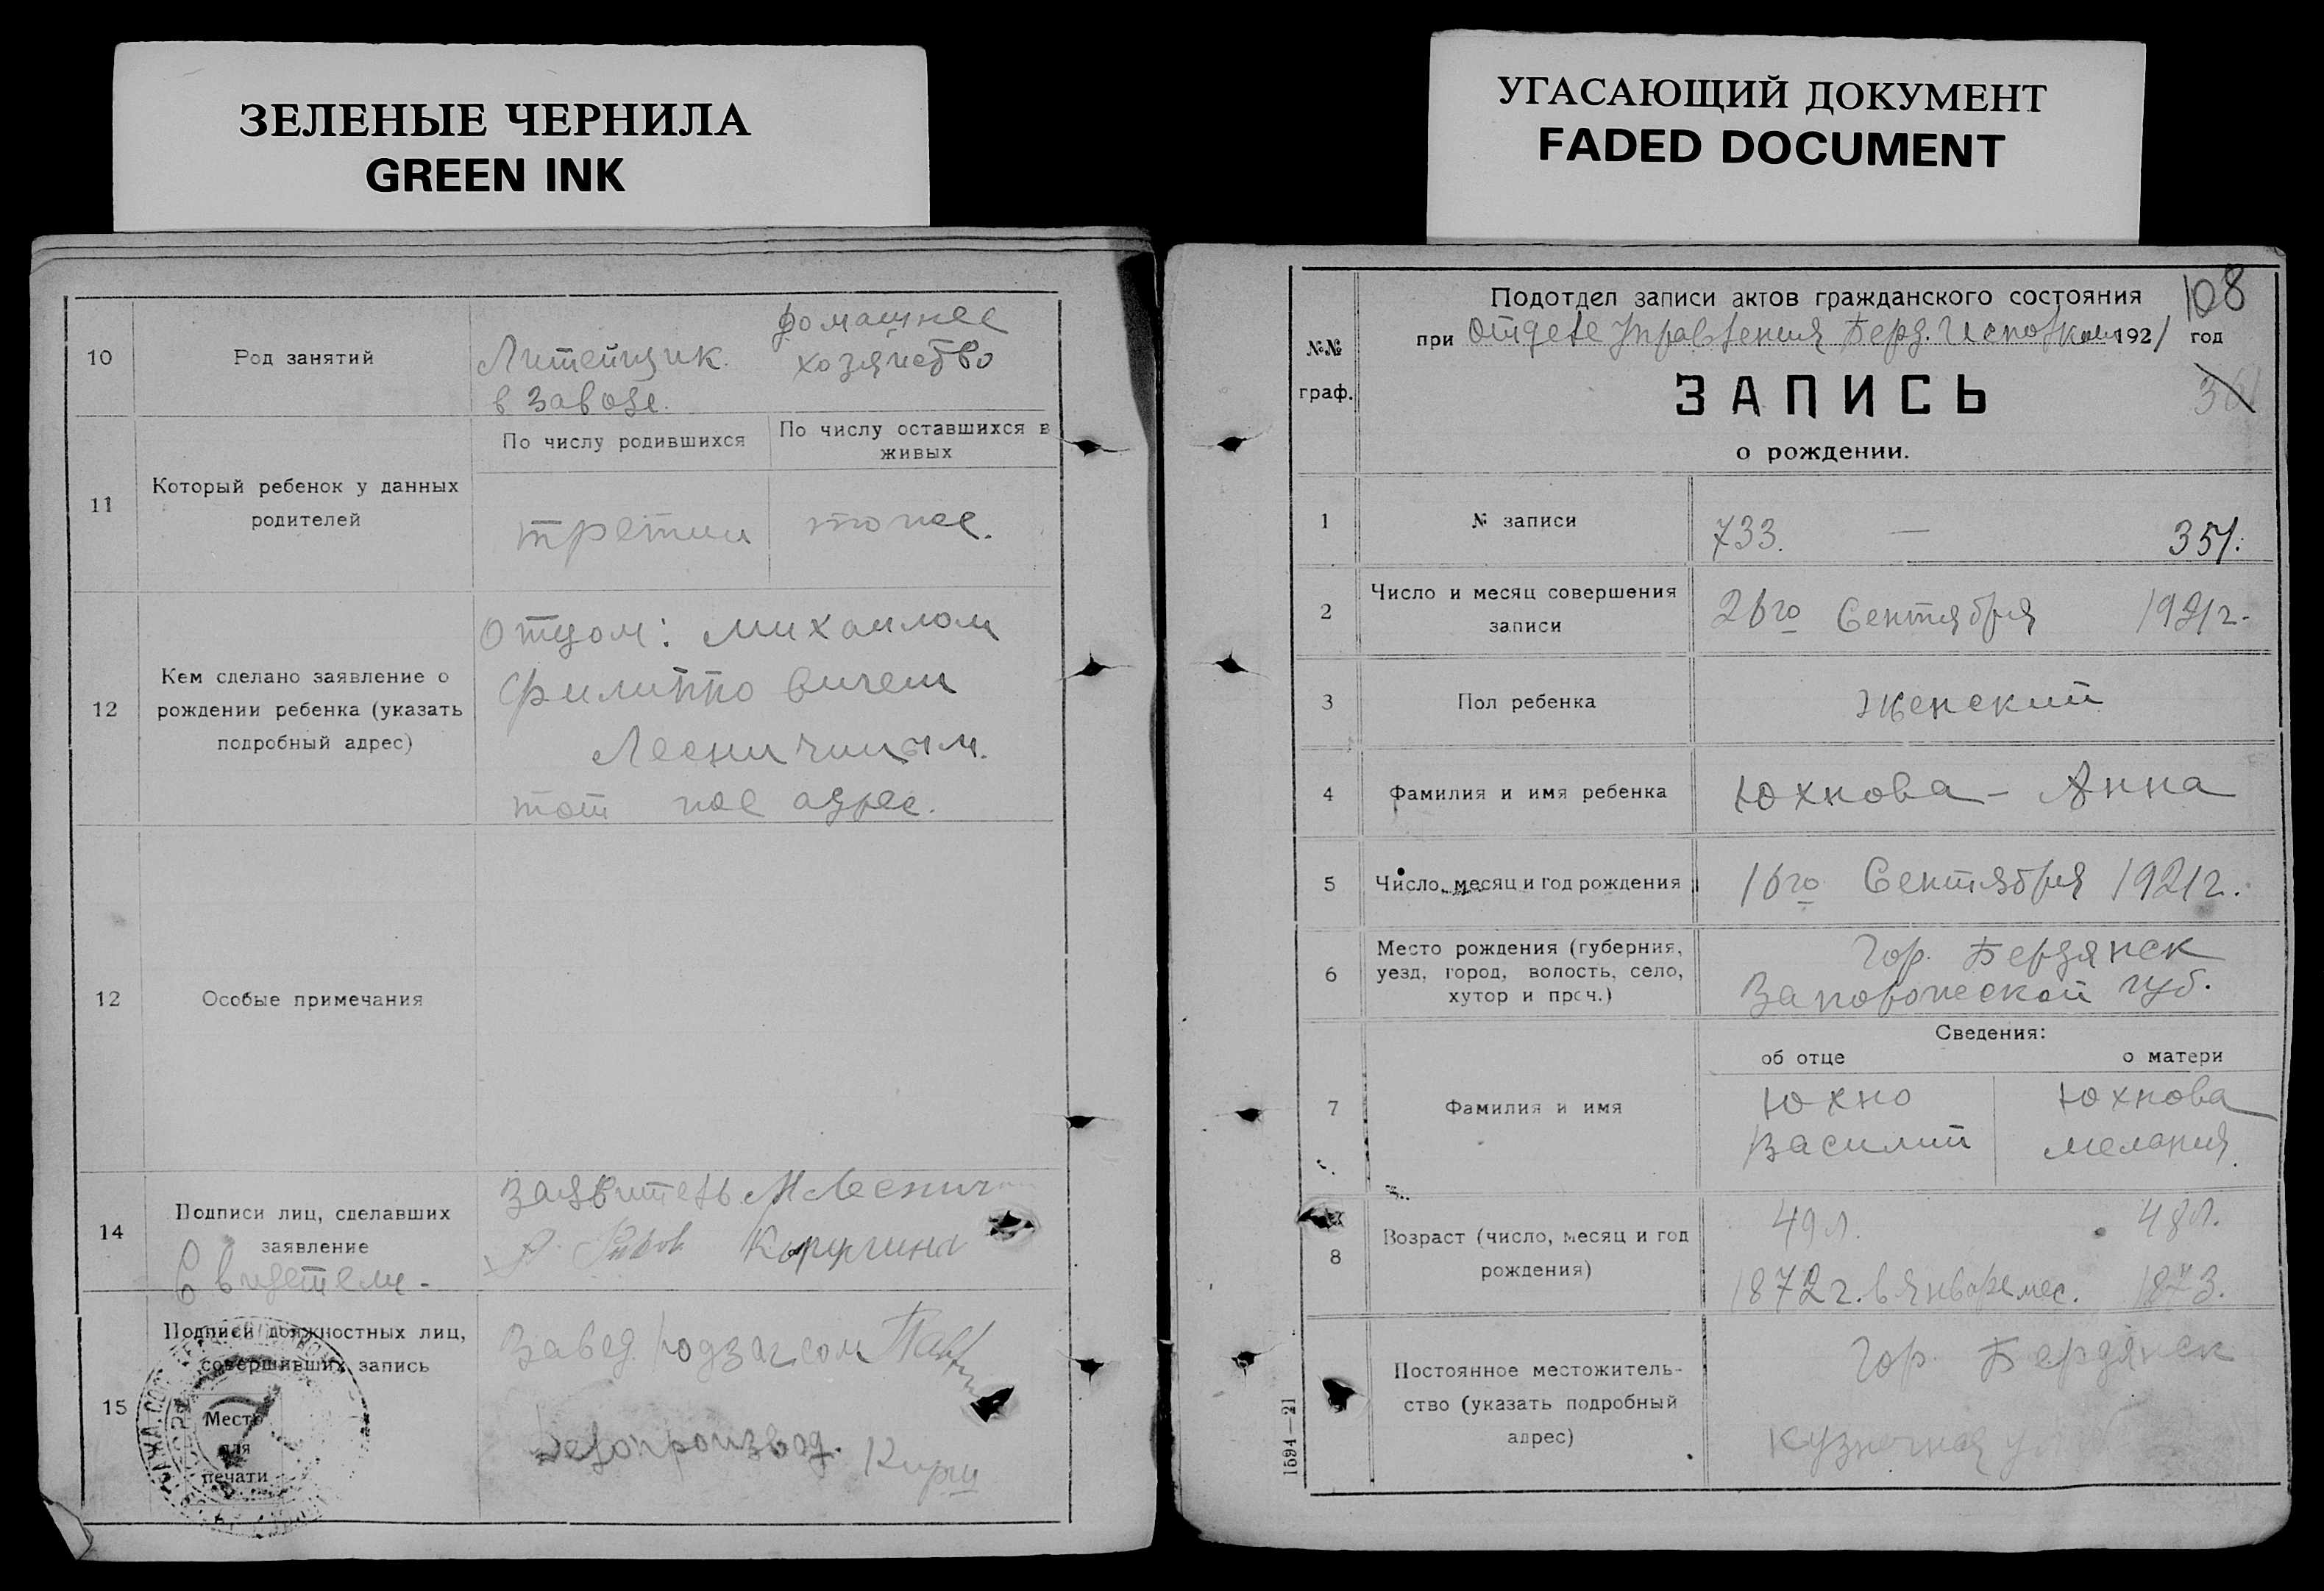 ЗЕЛЕНЫЕ ЧЕРНИЛА
GREEN INK
10
Род занятий
Литейщик
в заводе.
домашнее
хозяйство
11
Который ребенок у данных
родителей
По числу родившихся
По числу оставшихся в
живых
третий
тоже.
12
Кем сделано заявление о
рождении ребенка (указать
подробный адрес)
Отцом: Михаилом
Филипповичем
Лесничим
тот же адрес.
12
Особые примечания
14
Подписи лиц, сделавших
заявление
Свидетели-
Заявитель М Леснич
15
Подписи должностных лиц,
совершивших запись
Место
для
печати
Завед подзагсом
Делопроизвод.
УГАСАЮЩИЙ ДОКУМЕНТ
FADED DOCUMENT
108
Подотдел записи актов гражданского состояния
при Отделе Управления Берд. Исполком 1921 год
№№
граф.
ЗАПИСЬ
о рождении.
1
№ записи
733. — 351.
2
Число и месяц совершения
записи
26го Сентября 1921г.
3
Пол ребенка
Женский
4
Фамилия и имя ребенка
Юхнова - Анна
5
Число, месяц и год рождения
16го Сентября 1921г.
6
Место рождения (губерния,
уезд, город, волость, село,
хутор и проч.)
Гор. Бердянск
Запорожской губ.
Сведения:
об отце
о матери
7
Фамилия и имя
Юхно
Василий
Юхнова
Мелания
8
Возраст (число, месяц и год
рождения)
49 л.
1872 г. в Январе мес.
48 л.
1873.
Постоянное местожитель-
ство (указать подробный
адрес)
Гор Бердянск
Кузнечная у
1594—21